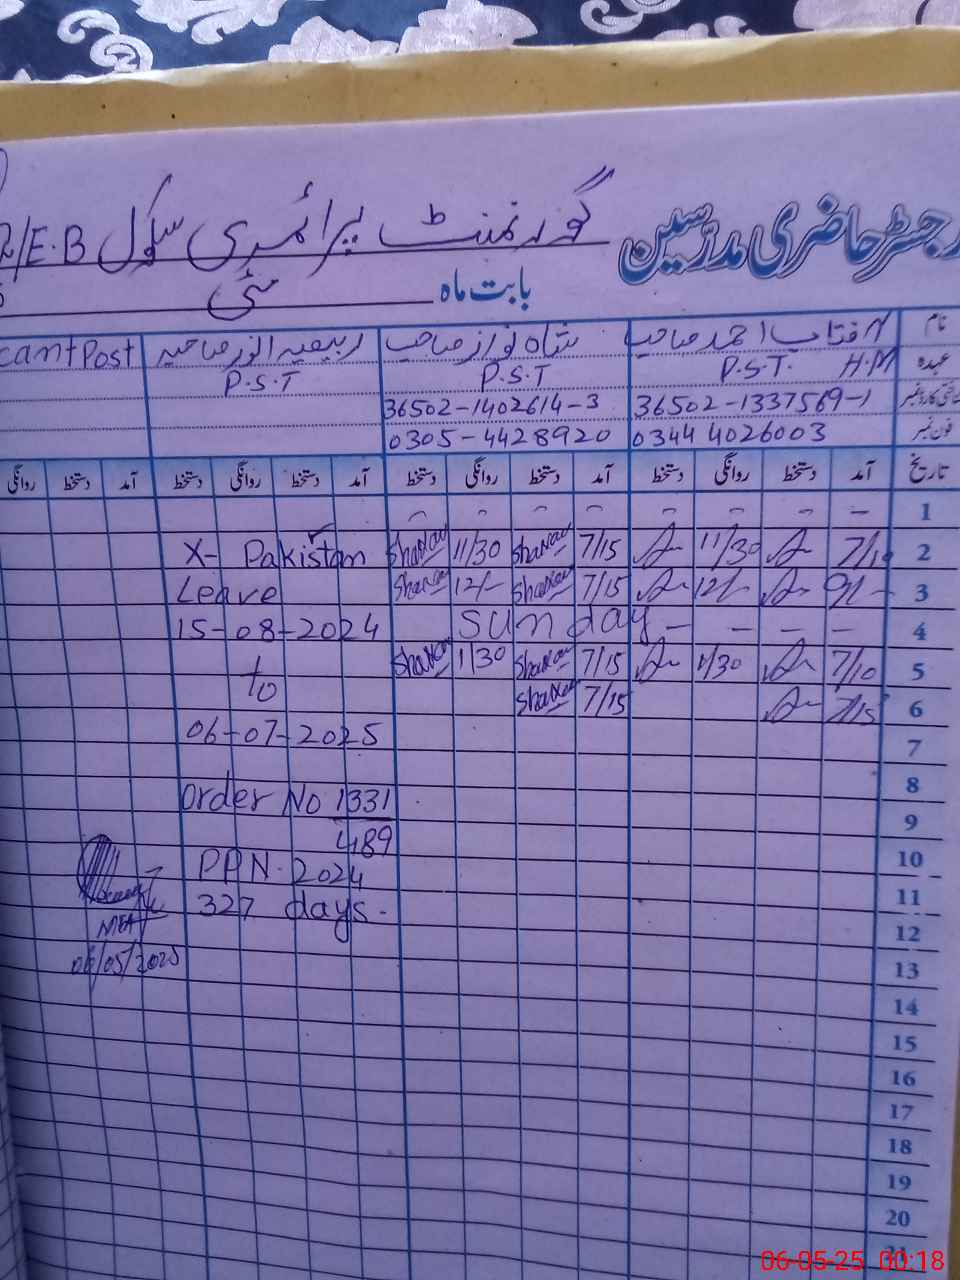 رجسٹر حاضری مدرسین گورنمنٹ پرائمری سکول /E.B
بابت ماہ مئی
نام آفتاب احمد صاحب شاہ نواز صاحب ربیعہ انور صاحبہ cant Post
عہدہ H.M P.S.T. P.S.T P.S.T
شناختی کارڈ نمبر 36502-1337569-1 36502-1402614-3
فون نمبر 0344 4026003 0305-4428920
تاریخ آمد دستخط روانگی دستخط آمد دستخط روانگی دستخط آمد دستخط روانگی دستخط آمد دستخط روانگی
1 – – – – – – – –
2 7/10 11/30 7/15 11/30 X- Pakistan
3 9/- 12/- 7/15 12/- Leave
4 – – – – Sunday 15-08-2024
5 7/10 1/30 7/15 1/30 to
6 7/15 7/15
7 06-07-2025
8 Order No 1331
9 489
10 2024
11 327 days.
12
13 06/05/2025
14
15
16
17
18
19
20
21
06-05-25 00:18